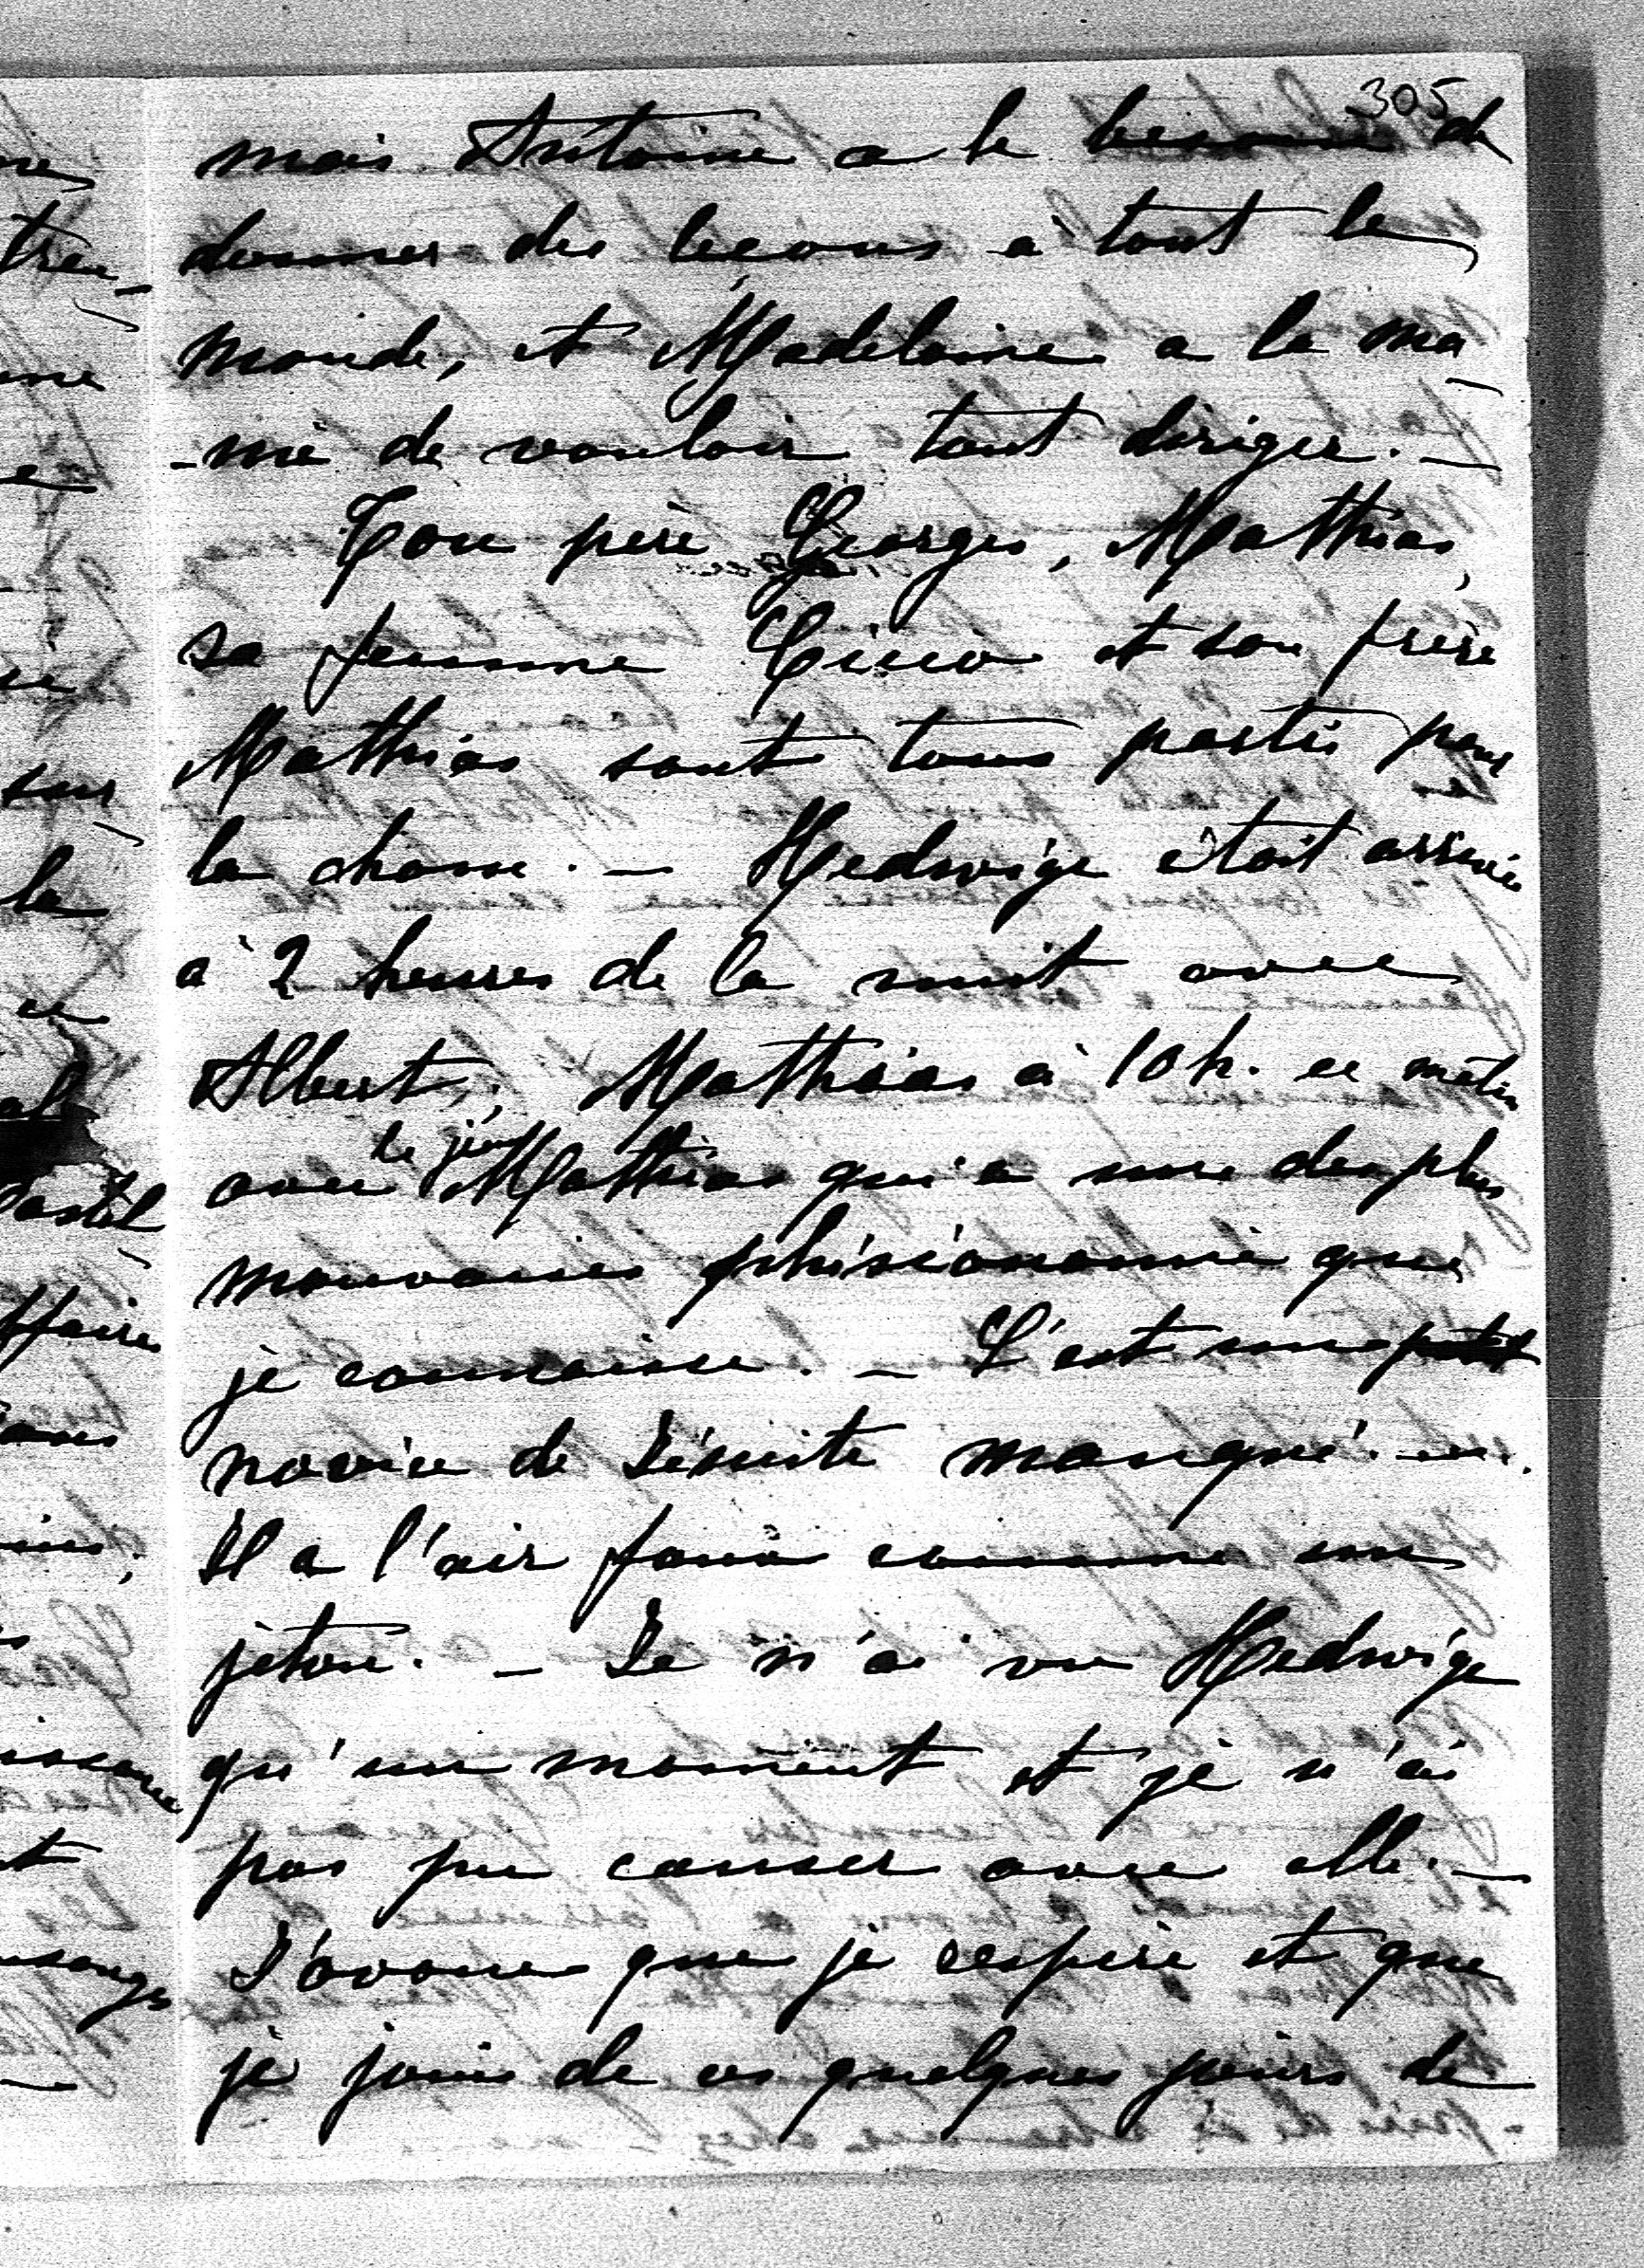 305
mais Antoine a le besoin de
donner des leçons à tout le
monde, et Madelaine a la ma
-nie de vouloir tout diriger. —
Ton père Georges, Mathias,
sa femme et son frère
Mathias sont tous partis pour
la chasse. — Hedwige était arrivée
à 2 heures de la nuit avec
Albert, Mathias à 10 h. ce matin
avec le jeu Mathias qui a une des plus
mauvaises phisionomie que
je connaisse. — C'est une
novice de Jésuite manqué.
Il a l'air faux comme un
jeton. — Je n'ai vu Hedwige
qu'un moment et je n'ai
pas pu causer avec elle. —
J'avoue que je respire et que
je jouis de ces quelques jours de